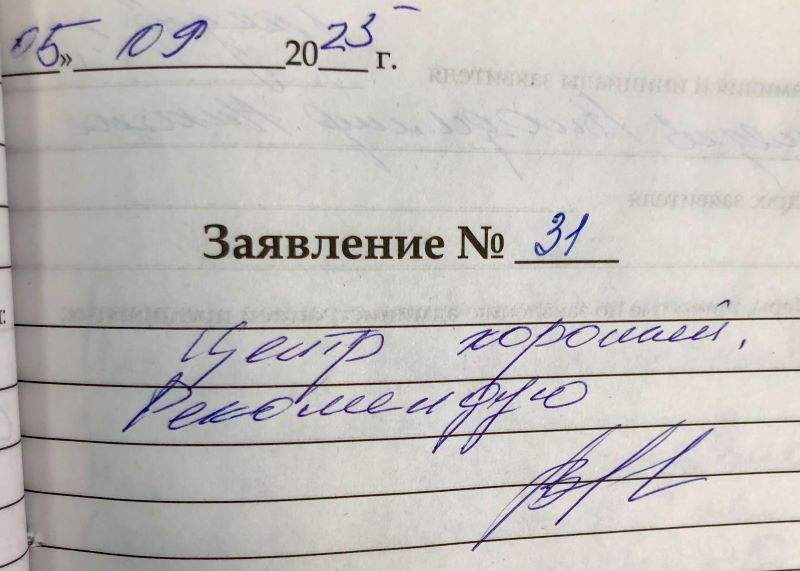 05» 09 2023 г.
Заявление № 31
Центр хороший.
Рекомендую